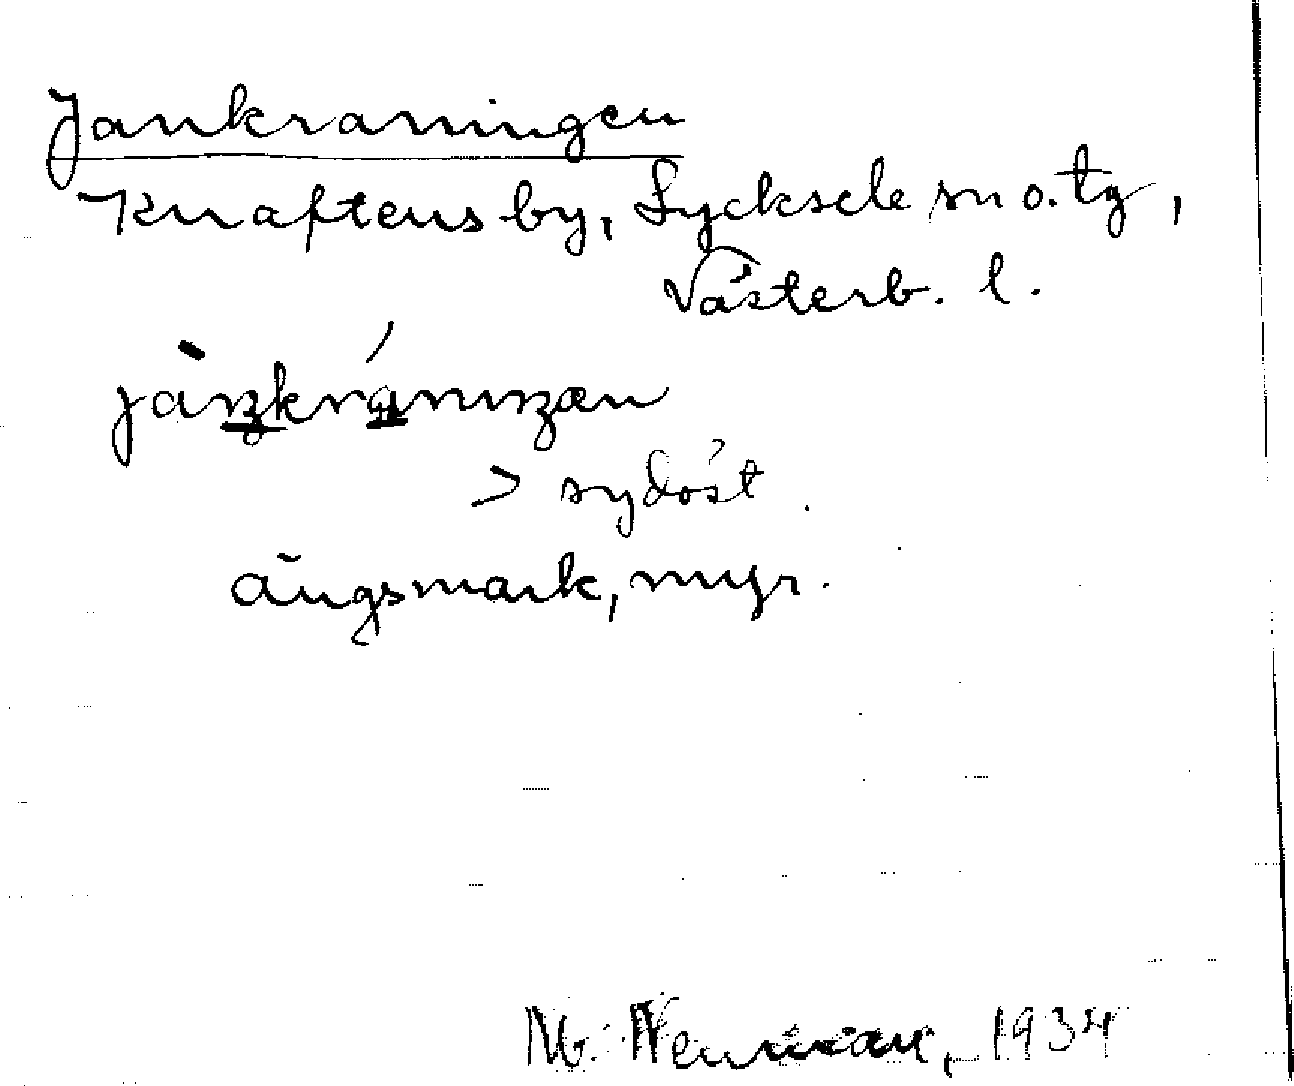 Jankraningen
Knaftens by, Lycksele sn o. tg,
Västerb. l.
jàŋkránıŋæn
> sydöst.
ängsmark, myr.
M. Wennman, 1934